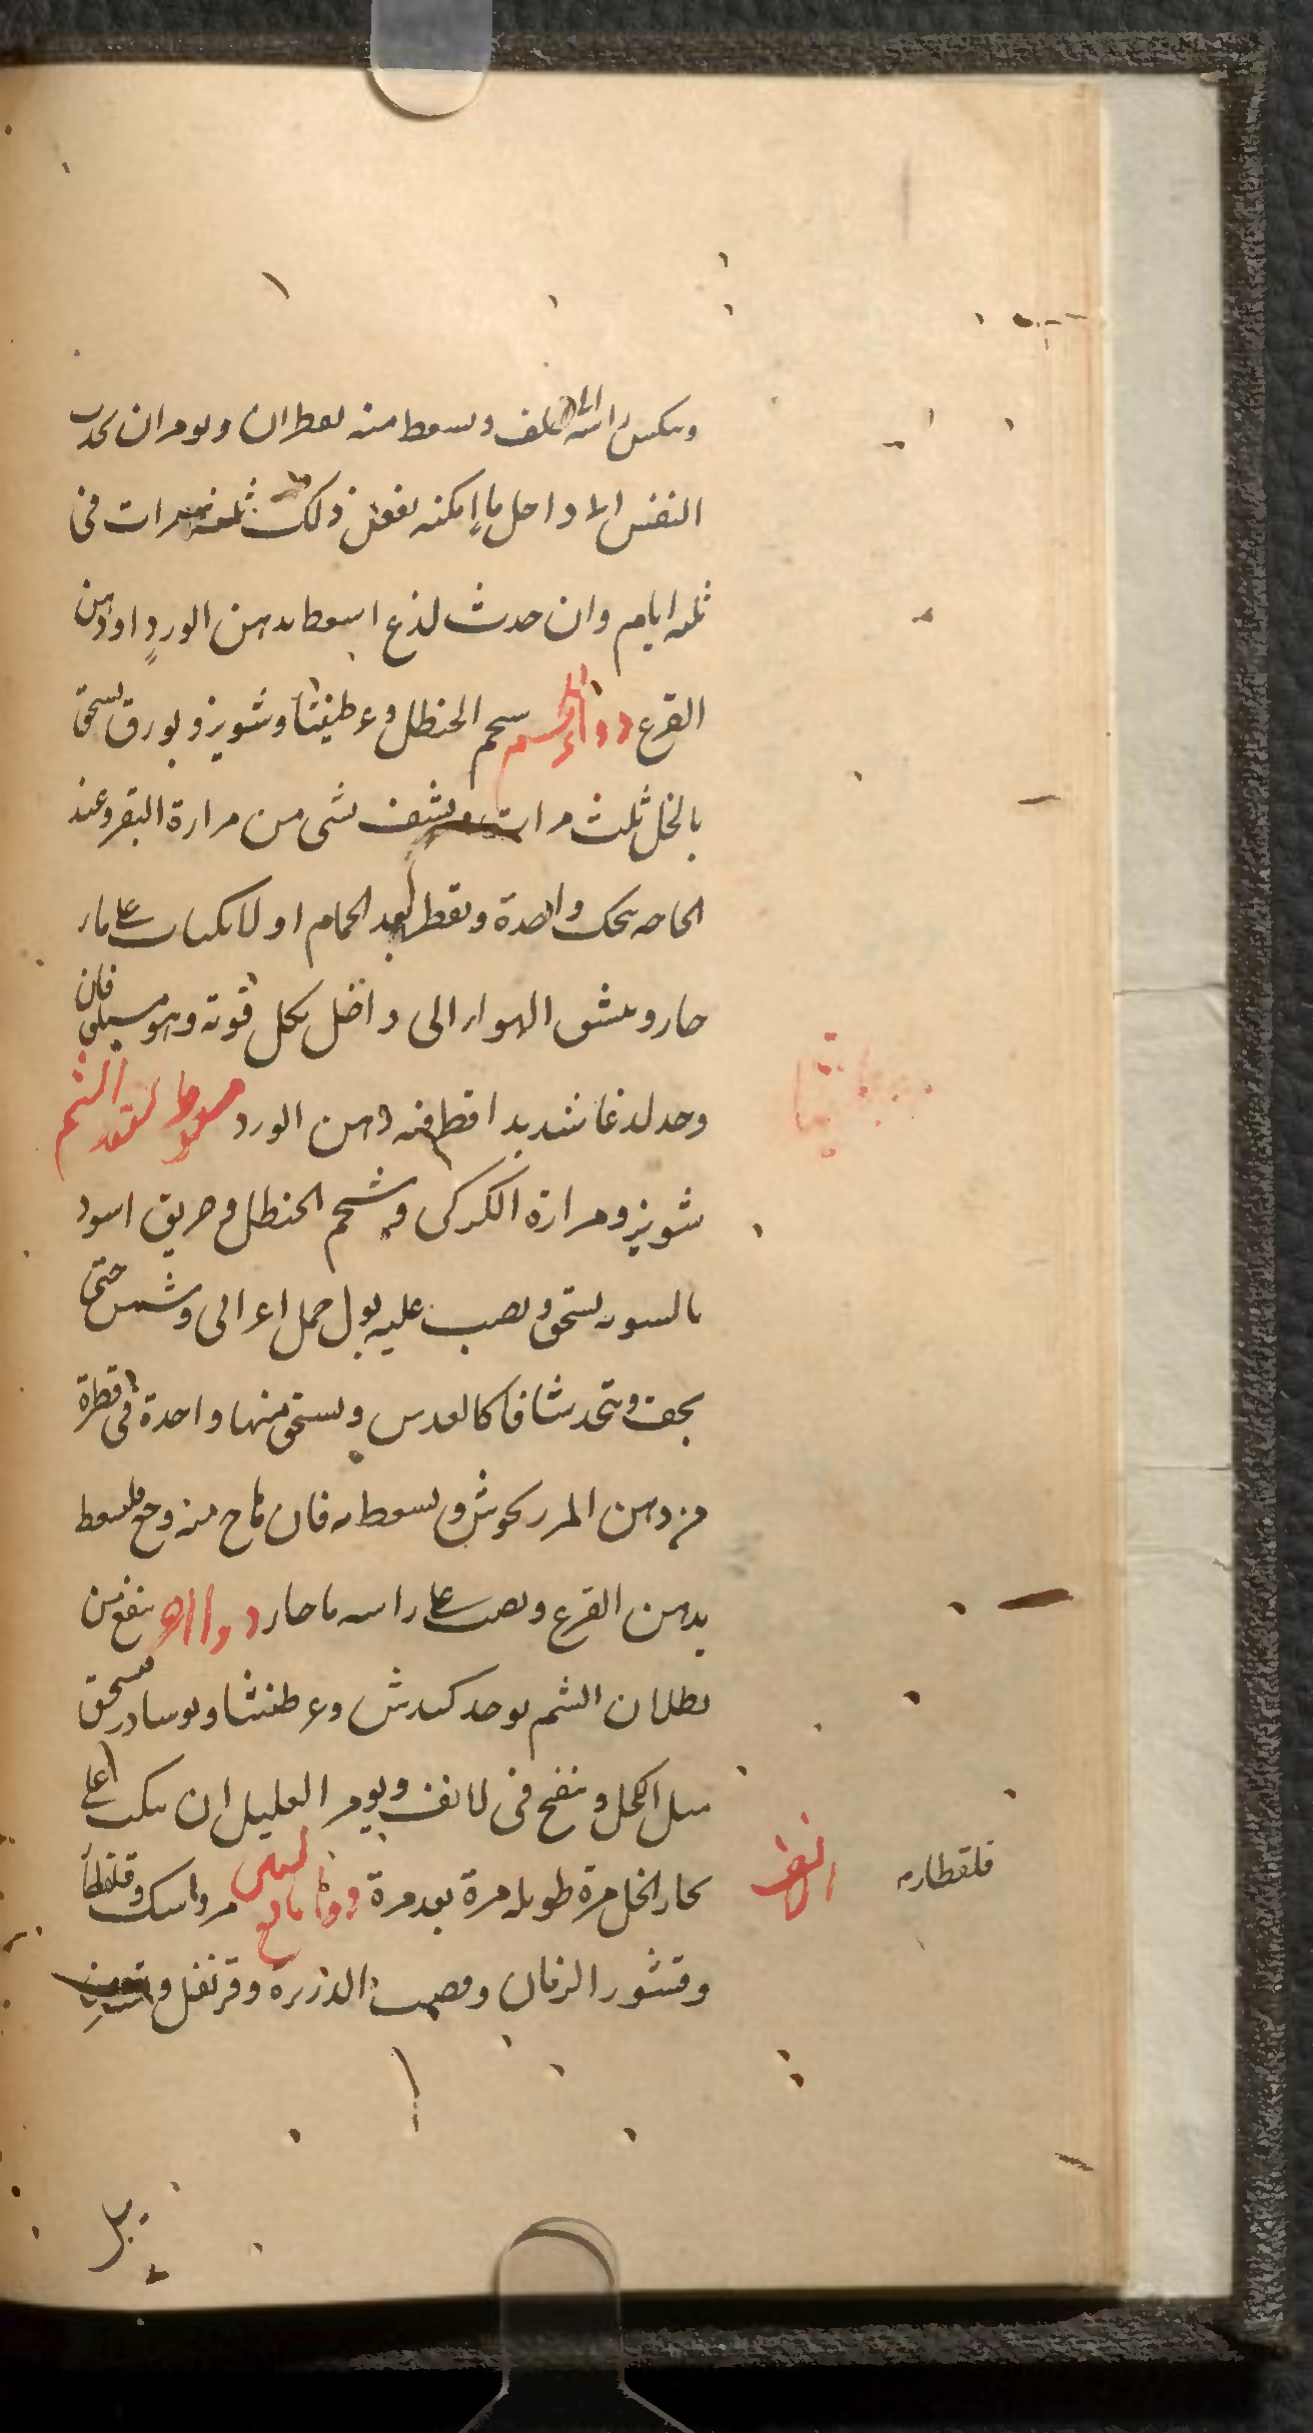 وينكس راسه الى خلف ويسعط منه بقطران ويومر ان يجذب
النفس الى داخل ما امكنه يفعل ذلك ثلث مرات فى
ثلثه ايام وان حدث لذع اسعط بدهن الورد او دهن
القرع دواء شحم الحنظل وعرطنيثا وشونيز وبورق يسحق
بالخل ثلث مرات ويشف بشى من مرارة البقر وعند
الحاجه يحك واحدة ويقطر بعد الحمام او الانكباب على ماء
حار وينشق الهواء الى داخل بكل قوته وهو مستلقى فان
وجد لذعا شديدا قطر فيه دهن الورد سعوط لفقد الشم
شونيز ومرارة الكركى وشحم الحنظل وخربق اسود
بالسويه يسحق ويصب عليه بول جمل اعرابى ويشمس حتى
يجف ويتخذ شيافا كالعدس ويسحق منها واحدة فى قطرة
من دهن المرزنجوش ويسعط به فان هاج منه وجع فليسعط
بدهن القرع ويصب على راسه ماء حار دواء اخر ينفع من
بطلان الشم يوخذ كندش وعرطنيثا ونوشادر يسحق
مثل الكحل وينفخ فى الانف ويومر العليل ان ينكب على
بخار الخل مرة طويله مرة بعد مرة دواء نافع لنتن مرداسنك وقلقطار
الانف
قلقطار
وقشور الرمان وقصب الذريرة وقرنفل